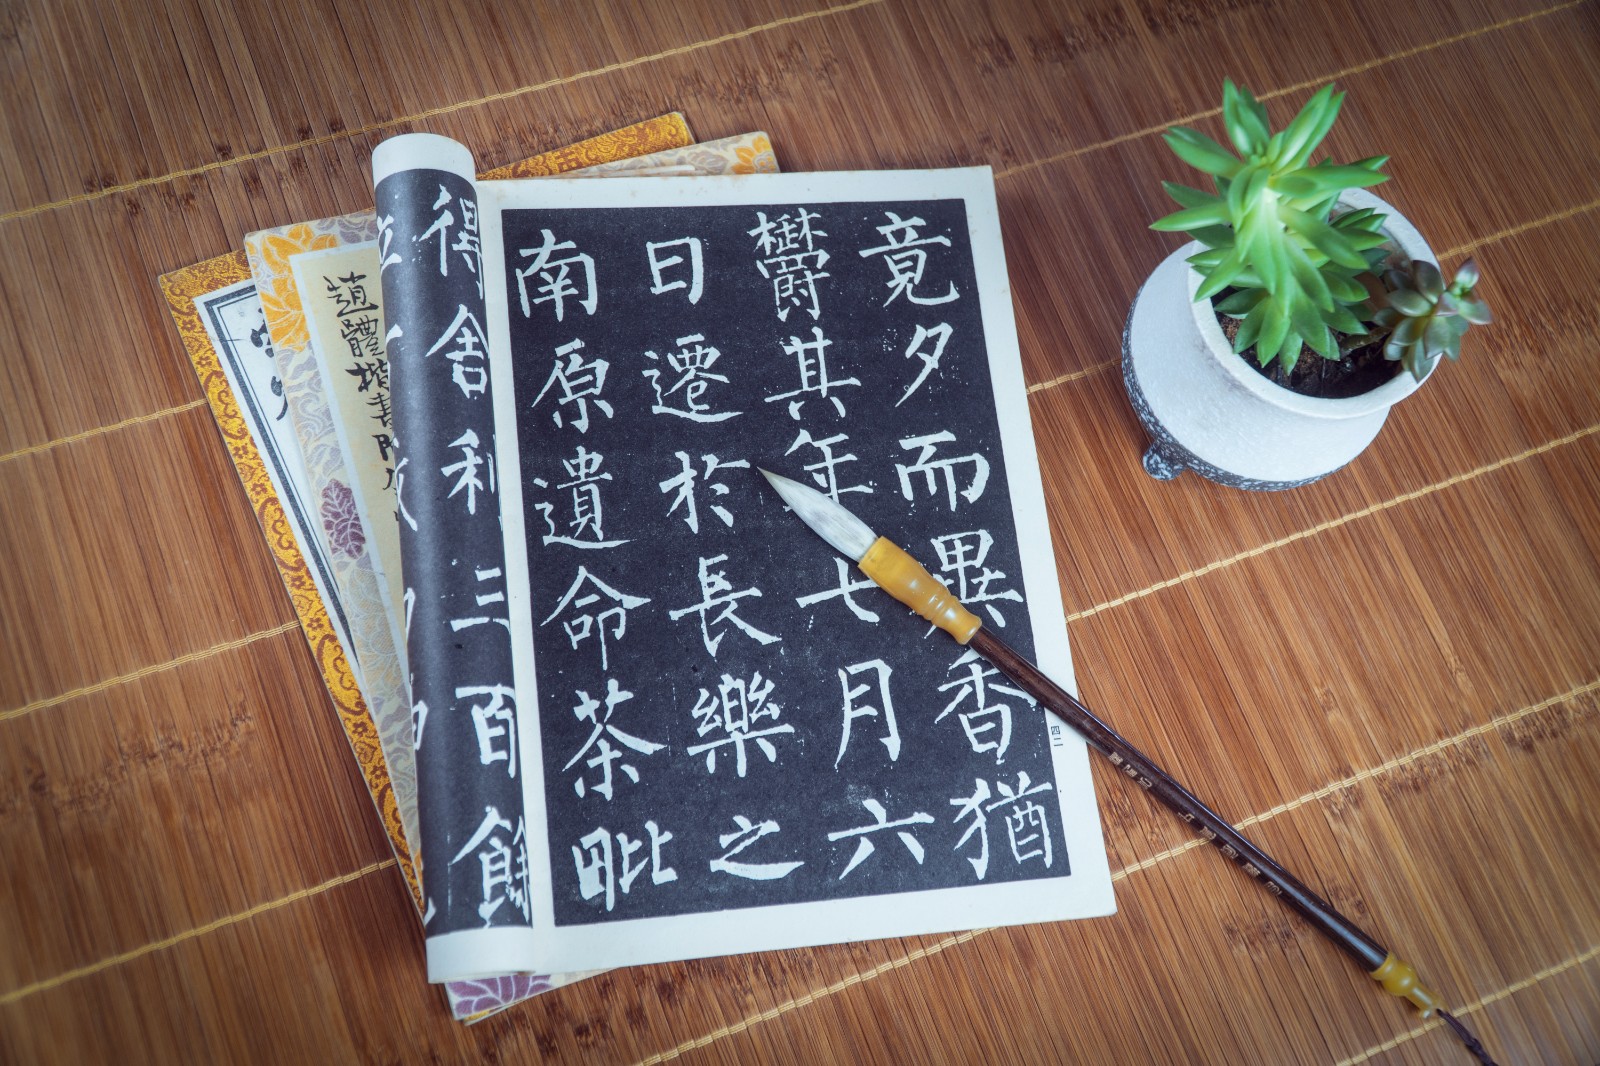 竟夕而異香猶
欝其年七月六
日遷於長樂之
南原遺命茶毗
得舍利三百餘
趙體楷書
四二